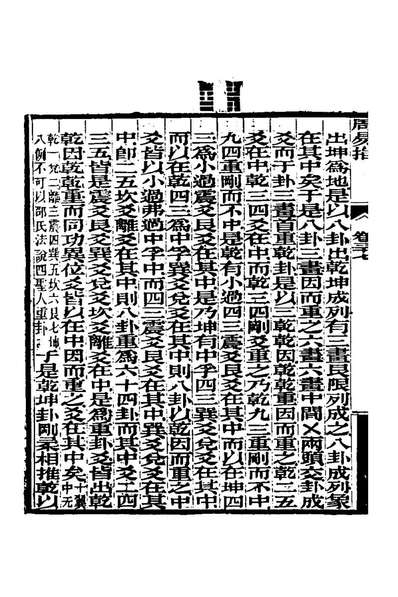 周易指 卷三七
出坤爲地是以八卦出乾坤成列有三畫艮限列成之八卦成列象
在其中矣于是八卦三畫因而重之六畫六畫中間乂兩頭交卦成
爻而于卦三畫首重乾卦是以三乾乾因乾乾重因而重之乾二五
爻在中乾三四爻在中是乾三四剛爻重之乃乾九三重剛而不中
九四重剛而不中是乾有小過四三爻在其中而以在坤四
三爲小過震爻艮爻在其中是乃坤有中孚四三巽爻兌爻在其中
而以在乾四三爲中孚巽爻兌爻在其中則八卦以乾因而重之中
爻皆以小過弗過中孚中而四三震爻艮爻在其中巽爻兌爻在其
中卽二五坎爻離爻在其中則八卦重爲六十四卦而其中爻二四
三五皆是震爻艮爻巽爻兌爻坎爻離爻在中是爲重卦爻皆出乾
乾因乾乾重而同功異位爻皆以在中因而重之爻在其中矣十翼中无
乾一兌二離三震四巽五坎六艮七坤
八例不可以邵氏法說四聖人重卦于是乾坤卦剛柔相推乾以